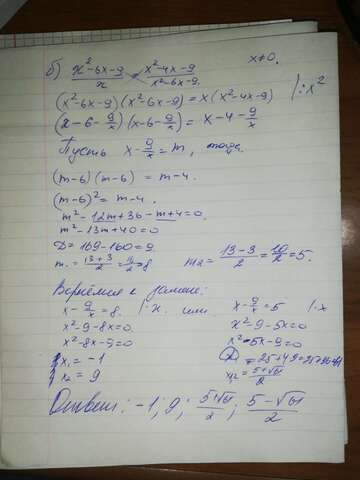 б) (x²-6x-9)/x = (x²-4x-9)/(x²-6x-9) x≠0.
(x²-6x-9)(x²-6x-9) = x(x²-4x-9) |:x²
(x-6-9/x)(x-6-9/x) = x-4-9/x
Пусть x-9/x=m, тогда
(m-6)(m-6) = m-4.
(m-6)² = m-4.
m²-12m+36-m+4=0.
m²-13m+40=0
D=169-160=9.
m₁=(13+3)/2=16/2=8 m₂=(13-3)/2=10/2=5.
Вернёмся к замене:
x-9/x=8. |·x. или x-9/x=5 |·x
x²-9-8x=0. x²-9-5x=0
x²-8x-9=0. x²-5x-9=0
x₁=-1 D=25+4·9=25+36=61
x₂=9 x₁,₂=(5±√61)/2
Ответ: -1; 9; (5+√61)/2; (5-√61)/2